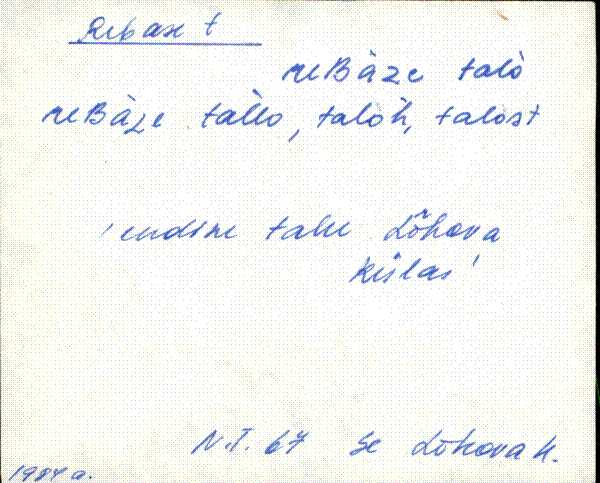 Rebase t
reBàze talò
reBàze tàllo, talòh, talòst
'endine talu Lõhova
külas'
N.T. 67 Se Lõhova k.
1984 a.